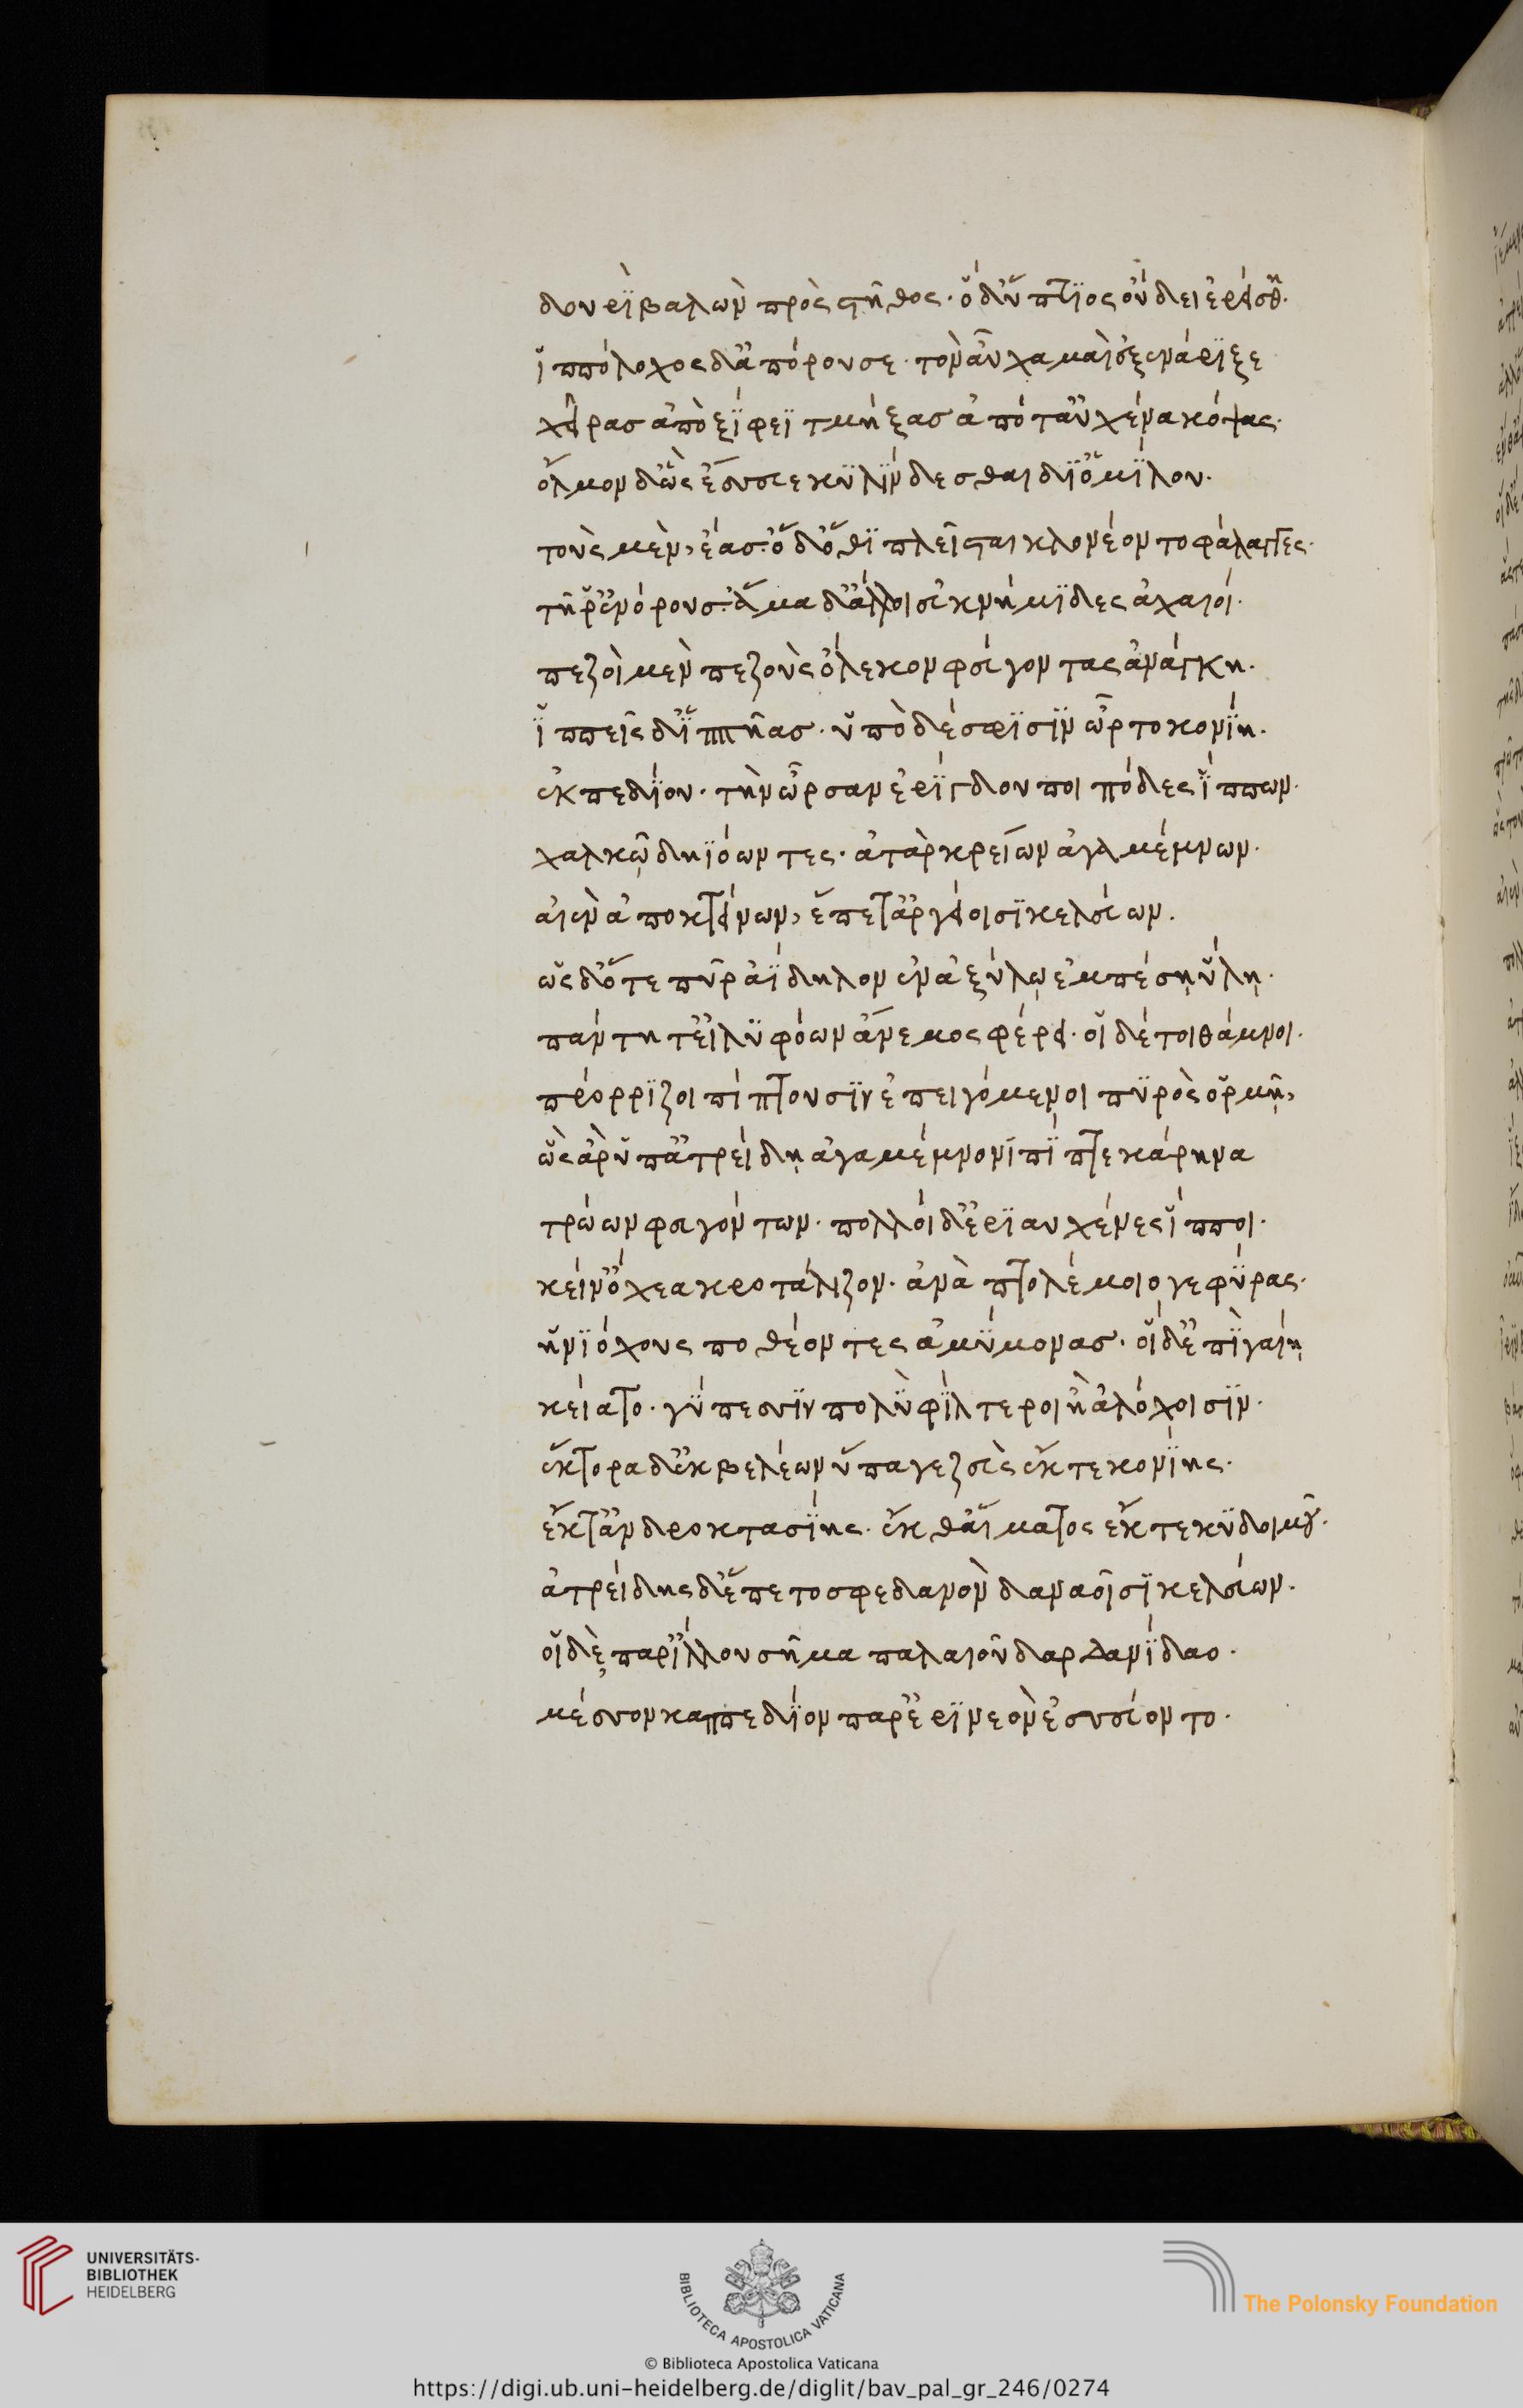 δουρὶ βαλὼν πρὸς στῆθος· ὃ δ' ὕπτιος οὔδει ἐρείσθη·
ἱππόλοχος δ' ἀπόρουσε· τὸν αὖ χαμαὶ ἐξενάριξε
χεῖρας ἀπὸ ξίφει τμήξας ἀπό τ' αὐχένα κόψας·
ὅλμον δ' ὣς ἔσσυε κυλίνδεσθαι δι' ὁμίλου·
τοὺς μὲν, ἔασ'· ὃ δ' ὅθι πλεῖσται κλονέοντο φάλαγγες·
τῇ ῥ' ἐνόρουσ'· ἅμα δ' ἄλλοι ἐϋκνήμιδες ἀχαιοί·
πεζοὶ μὲν πεζοὺς ὄλεκον φεύγοντας ἀνάγκη·
ἱππεῖς δ' ἱππῆας· ὑπὸ δέ σφισιν ὦρτο κονίη·
ἐκ πεδίου· τὴν ὦρσαν ἐρίγδουποι πόδες ἵππων·
χαλκῷ δηϊόωντες· ἀτὰρ κρείων ἀγαμέμνων·
αἰὲν ἀποκτείνων, ἕπετ' ἀργείοισι κελεύων·
ὡς δ' ὅτε πῦρ ἀΐδηλον ἐν ἀξύλῳ ἐμπέσῃ ὕλῃ·
πάντη τ' εἰλυφόων ἄνεμος φέρει· οἱ δέ τοι θάμνοι·
πρόρριζοι πίπτουσιν ἐπειγόμενοι πυρὸς ὁρμῇ,
ὣς ἄρ' ὑπ' ἀτρείδῃ ἀγαμέμνονι πῖπτε κάρηνα
τρώων φευγόντων· πολλοὶ δ' ἐριαύχενες ἵπποι·
κείν' ὄχεα κροτάλιζον· ἀνὰ πτολέμοιο γεφύρας·
ἡνιόχους ποθέοντες ἀμύμονας· οἱ δ' ἐπὶ γαίῃ
κείατο· γύπεσσιν πολὺ φίλτεροι ἢ ἀλόχοισιν·
ἕκτορα δ' ἐκ βελέων ὕπαγε ζεὺς ἔκ τε κονίης·
ἔκ τ' ἀνδροκτασίης· ἔκ θ' αἵματος ἔκ τε κυδοιμοῦ·
ἀτρείδης δ' ἕπετο σφεδανὸν δαναοῖσι κελεύων·
οἱ δὲ παρ' ἴλλου σῆμα παλαιοῦ δαρδανίδαο·
μέσσον καππεδίον παρ' ἐρινεὸν ἐσσεύοντο·
UNIVERSITÄTS-
BIBLIOTHEK
HEIDELBERG
BIBLIOTECA APOSTOLICA VATICANA
The Polonsky Foundation
© Biblioteca Apostolica Vaticana
https://digi.ub.uni-heidelberg.de/diglit/bav_pal_gr_246/0274